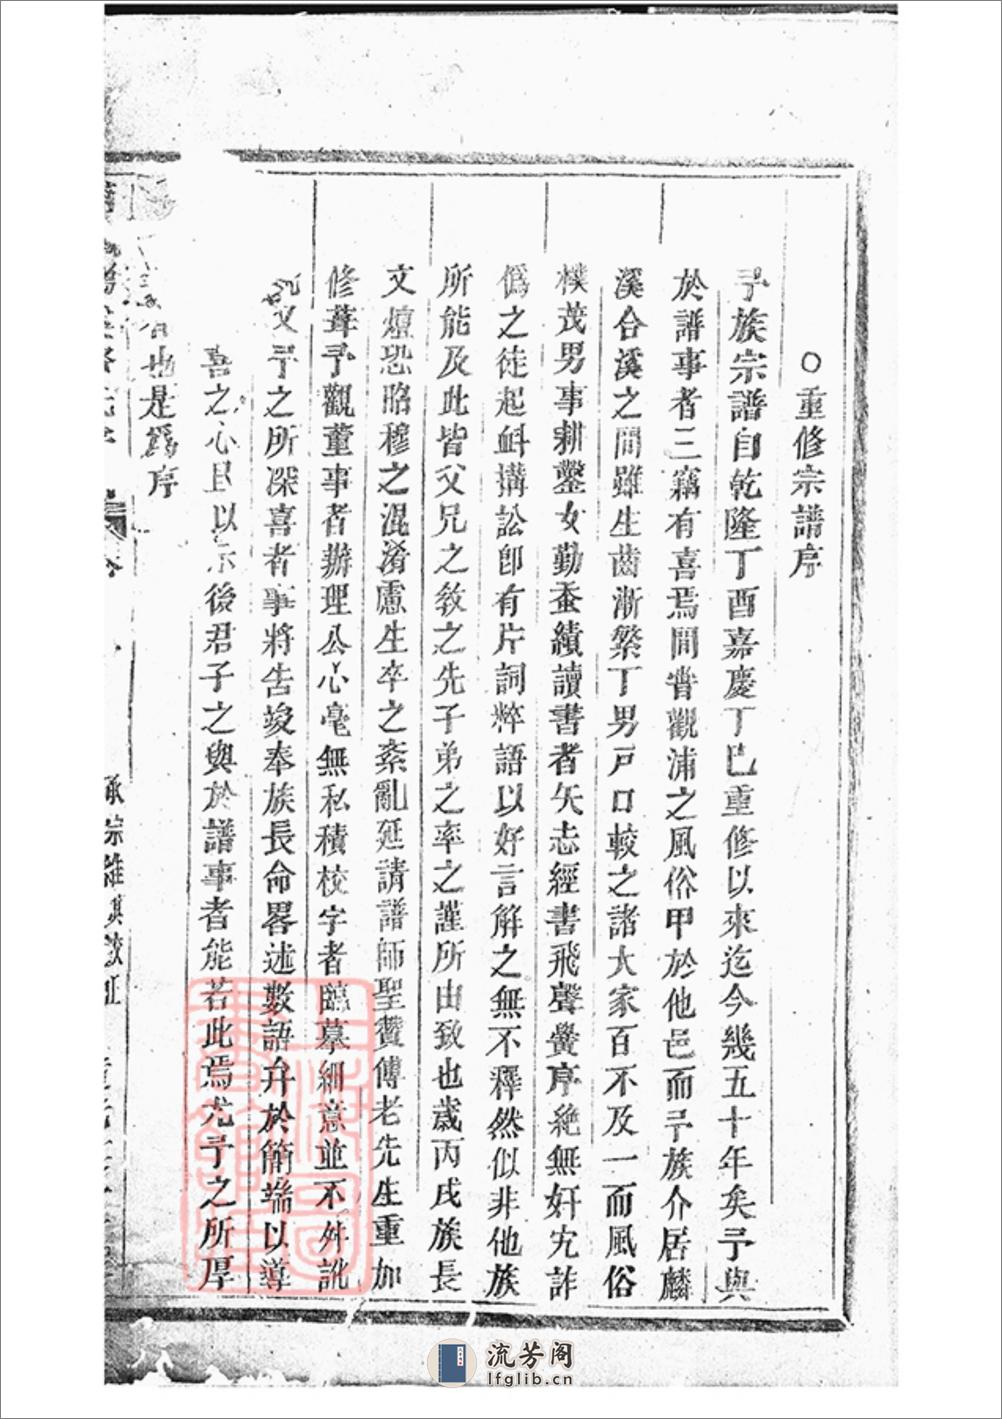 ○重修宗譜序
予族宗譜自乾隆丁酉嘉慶丁巳重修以來迄今幾五十年矣予與
於譜事者三竊有喜焉間嘗觀浦之風俗甲於他邑而予族介居麟
溪合溪之間雖生齒漸繁丁男戸口較之諸大家百不及一而風俗
樸茂男事耕鑿女勤蚕績讀書者矢志經書飛聲黌序絶無奸宄詐
僞之徒起衅搆訟卽有片詞粹語以好言解之無不釋然似非他族
所能及此皆父兄之敎之先子弟之率之謹所由致也歳丙戌族長
文煊恐昭穆之混淆慮生卒之紊亂延請譜師聖賛傅老先生重加
修葺予觀董事者辦理公心毫無私積校字者臨摹細意並不舛訛
又予之所深喜者事將告竣奉族長命畧述數語弁於簡端以導
喜之心且以示後君子之與於譜事者能若此焉尤予之所厚
也是爲序
承宗維祺校正
流芳阁
lfglib.cn